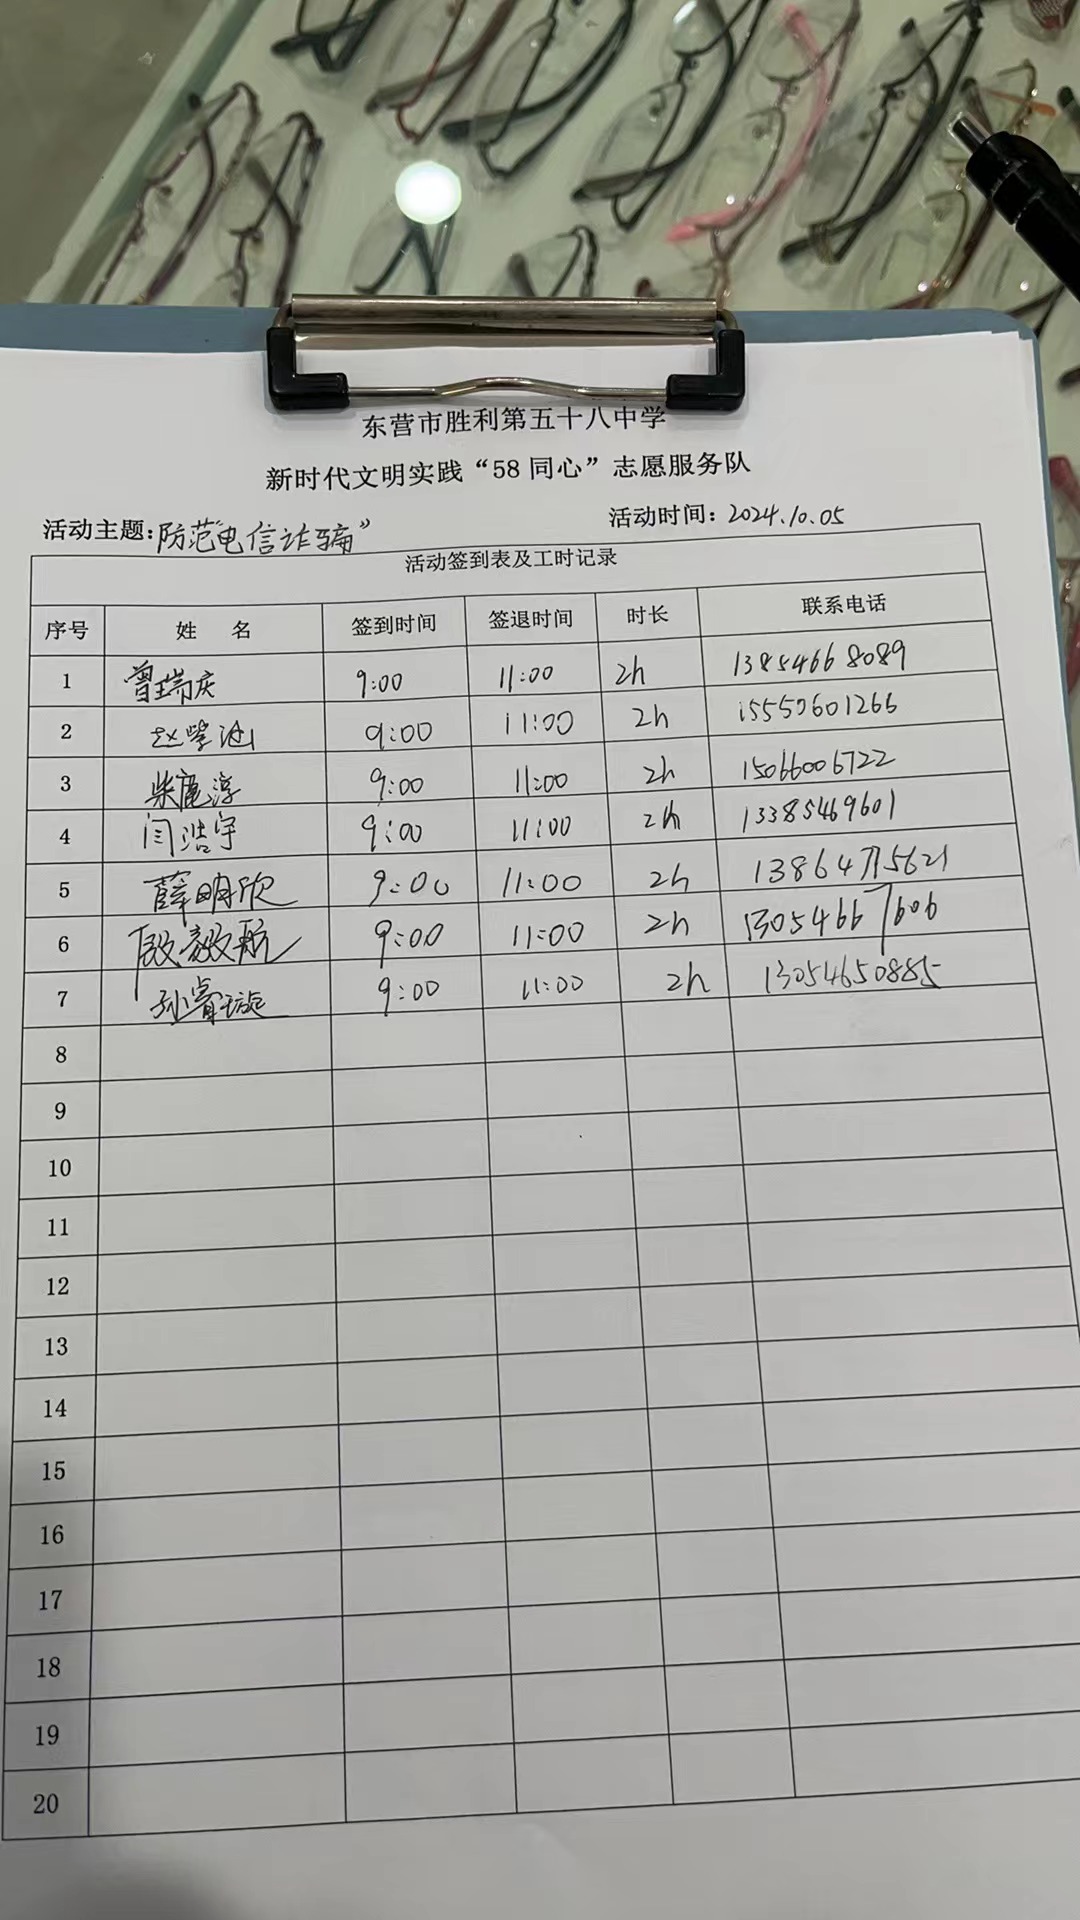 东营市胜利第五十八中学
新时代文明实践“58 同心”志愿服务队
活动主题：防范“电信诈骗” 活动时间：2024.10.05
活动签到表及工时记录
序号 姓 名 签到时间 签退时间 时长 联系电话
1 曾瑞庆 9:00 11:00 2h 13854668089
2 赵 9:00 11:00 2h 15550601266
3 柴 淳 9:00 11:00 2h 15066006722
4 闫浩宇 9:00 11:00 2h 13385469601
5 薛明欣 9:00 11:00 2h 13864775621
6 殷毅航 9:00 11:00 2h 13054667606
7 孙睿璇 9:00 11:00 2h 13054650885
8
9
10
11
12
13
14
15
16
17
18
19
20